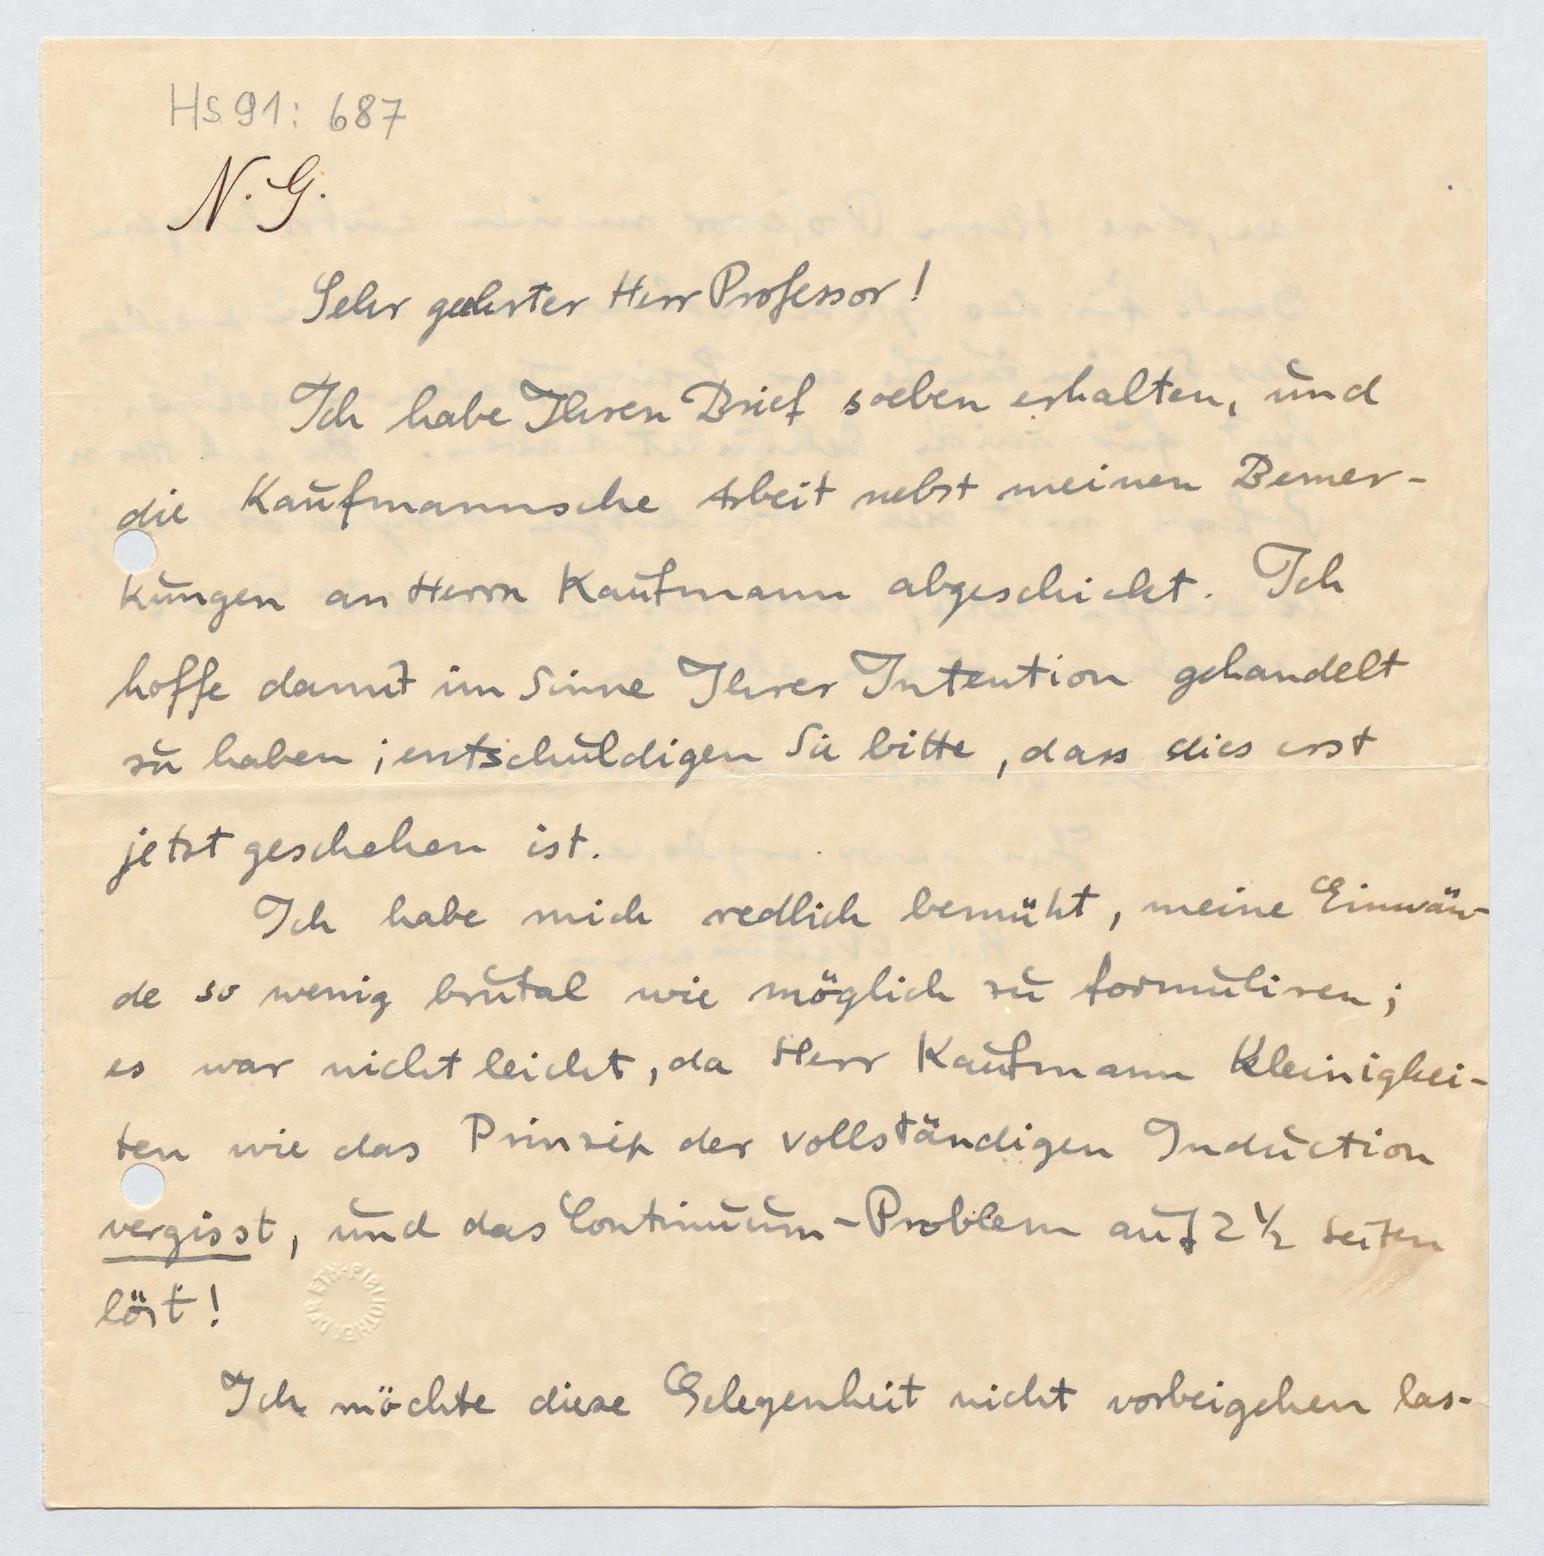 Hs 91: 687
N. G.
Sehr geehrter Herr Professor!
Ich habe Ihren Brief soeben erhalten, und
die Kaufmannsche Arbeit nebst meinen Bemer-
kungen an Herrn Kaufmann abgeschickt. Ich
hoffe damit im Sinne Ihrer Intention gehandelt
zu haben; entschuldigen Sie bitte, dass dies erst
jetzt geschehen ist.
Ich habe mich redlich bemüht, meine Einwän-
de so wenig brutal wie möglich zu formuliren;
es war nicht leicht, da Herr Kaufmann Kleinigkei-
ten wie das Prinzip der vollständigen Induction
vergisst, und das Continuum-Problem auf 2 1/2 Seiten
löst!
Ich möchte diese Gelegenheit nicht vorbeigehen las-